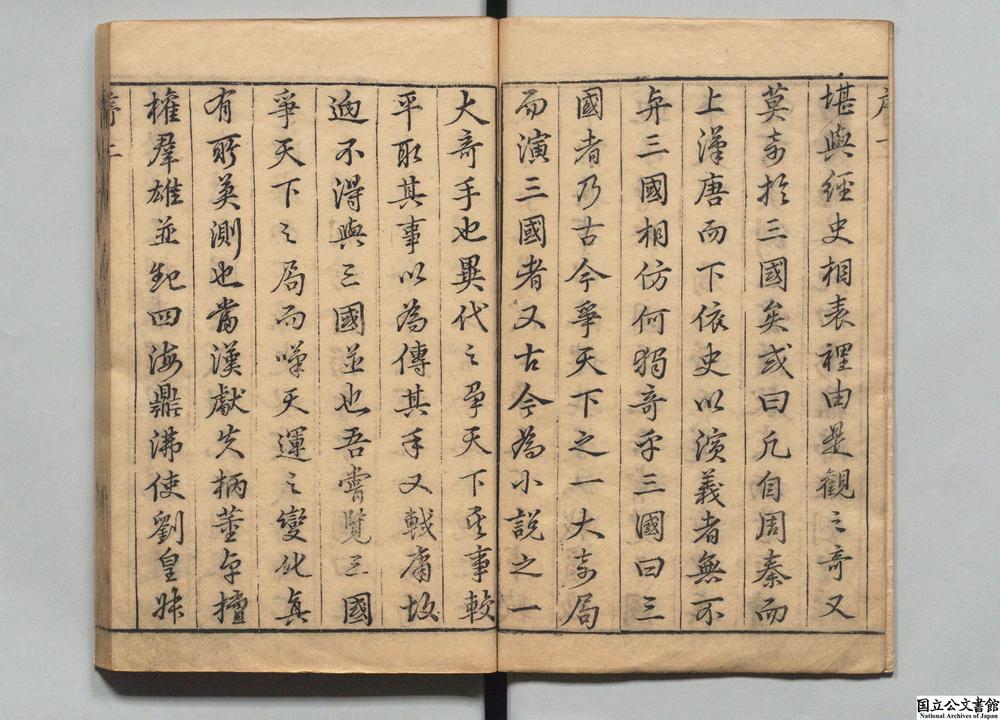 序一
堪與經史相表裡由是觀之奇又
莫奇於三國矣或曰凢自周秦而
上漢唐而下依史以演義者無不
與三國相仿何獨奇乎三國曰三
國者乃古今爭天下之一大奇局
而演三國者又古今為小說之一
大奇手也異代之爭天下其事較
平取其事以為傳其手又較庸故
迥不得與三國並也吾嘗覽三國
爭天下之局而嘆天運之變化真
有所莫測也當漢獻失柄董卓擅
權群雄並起四海鼎沸使劉皇叔
序二
国立公文書館
National Archives of Japan